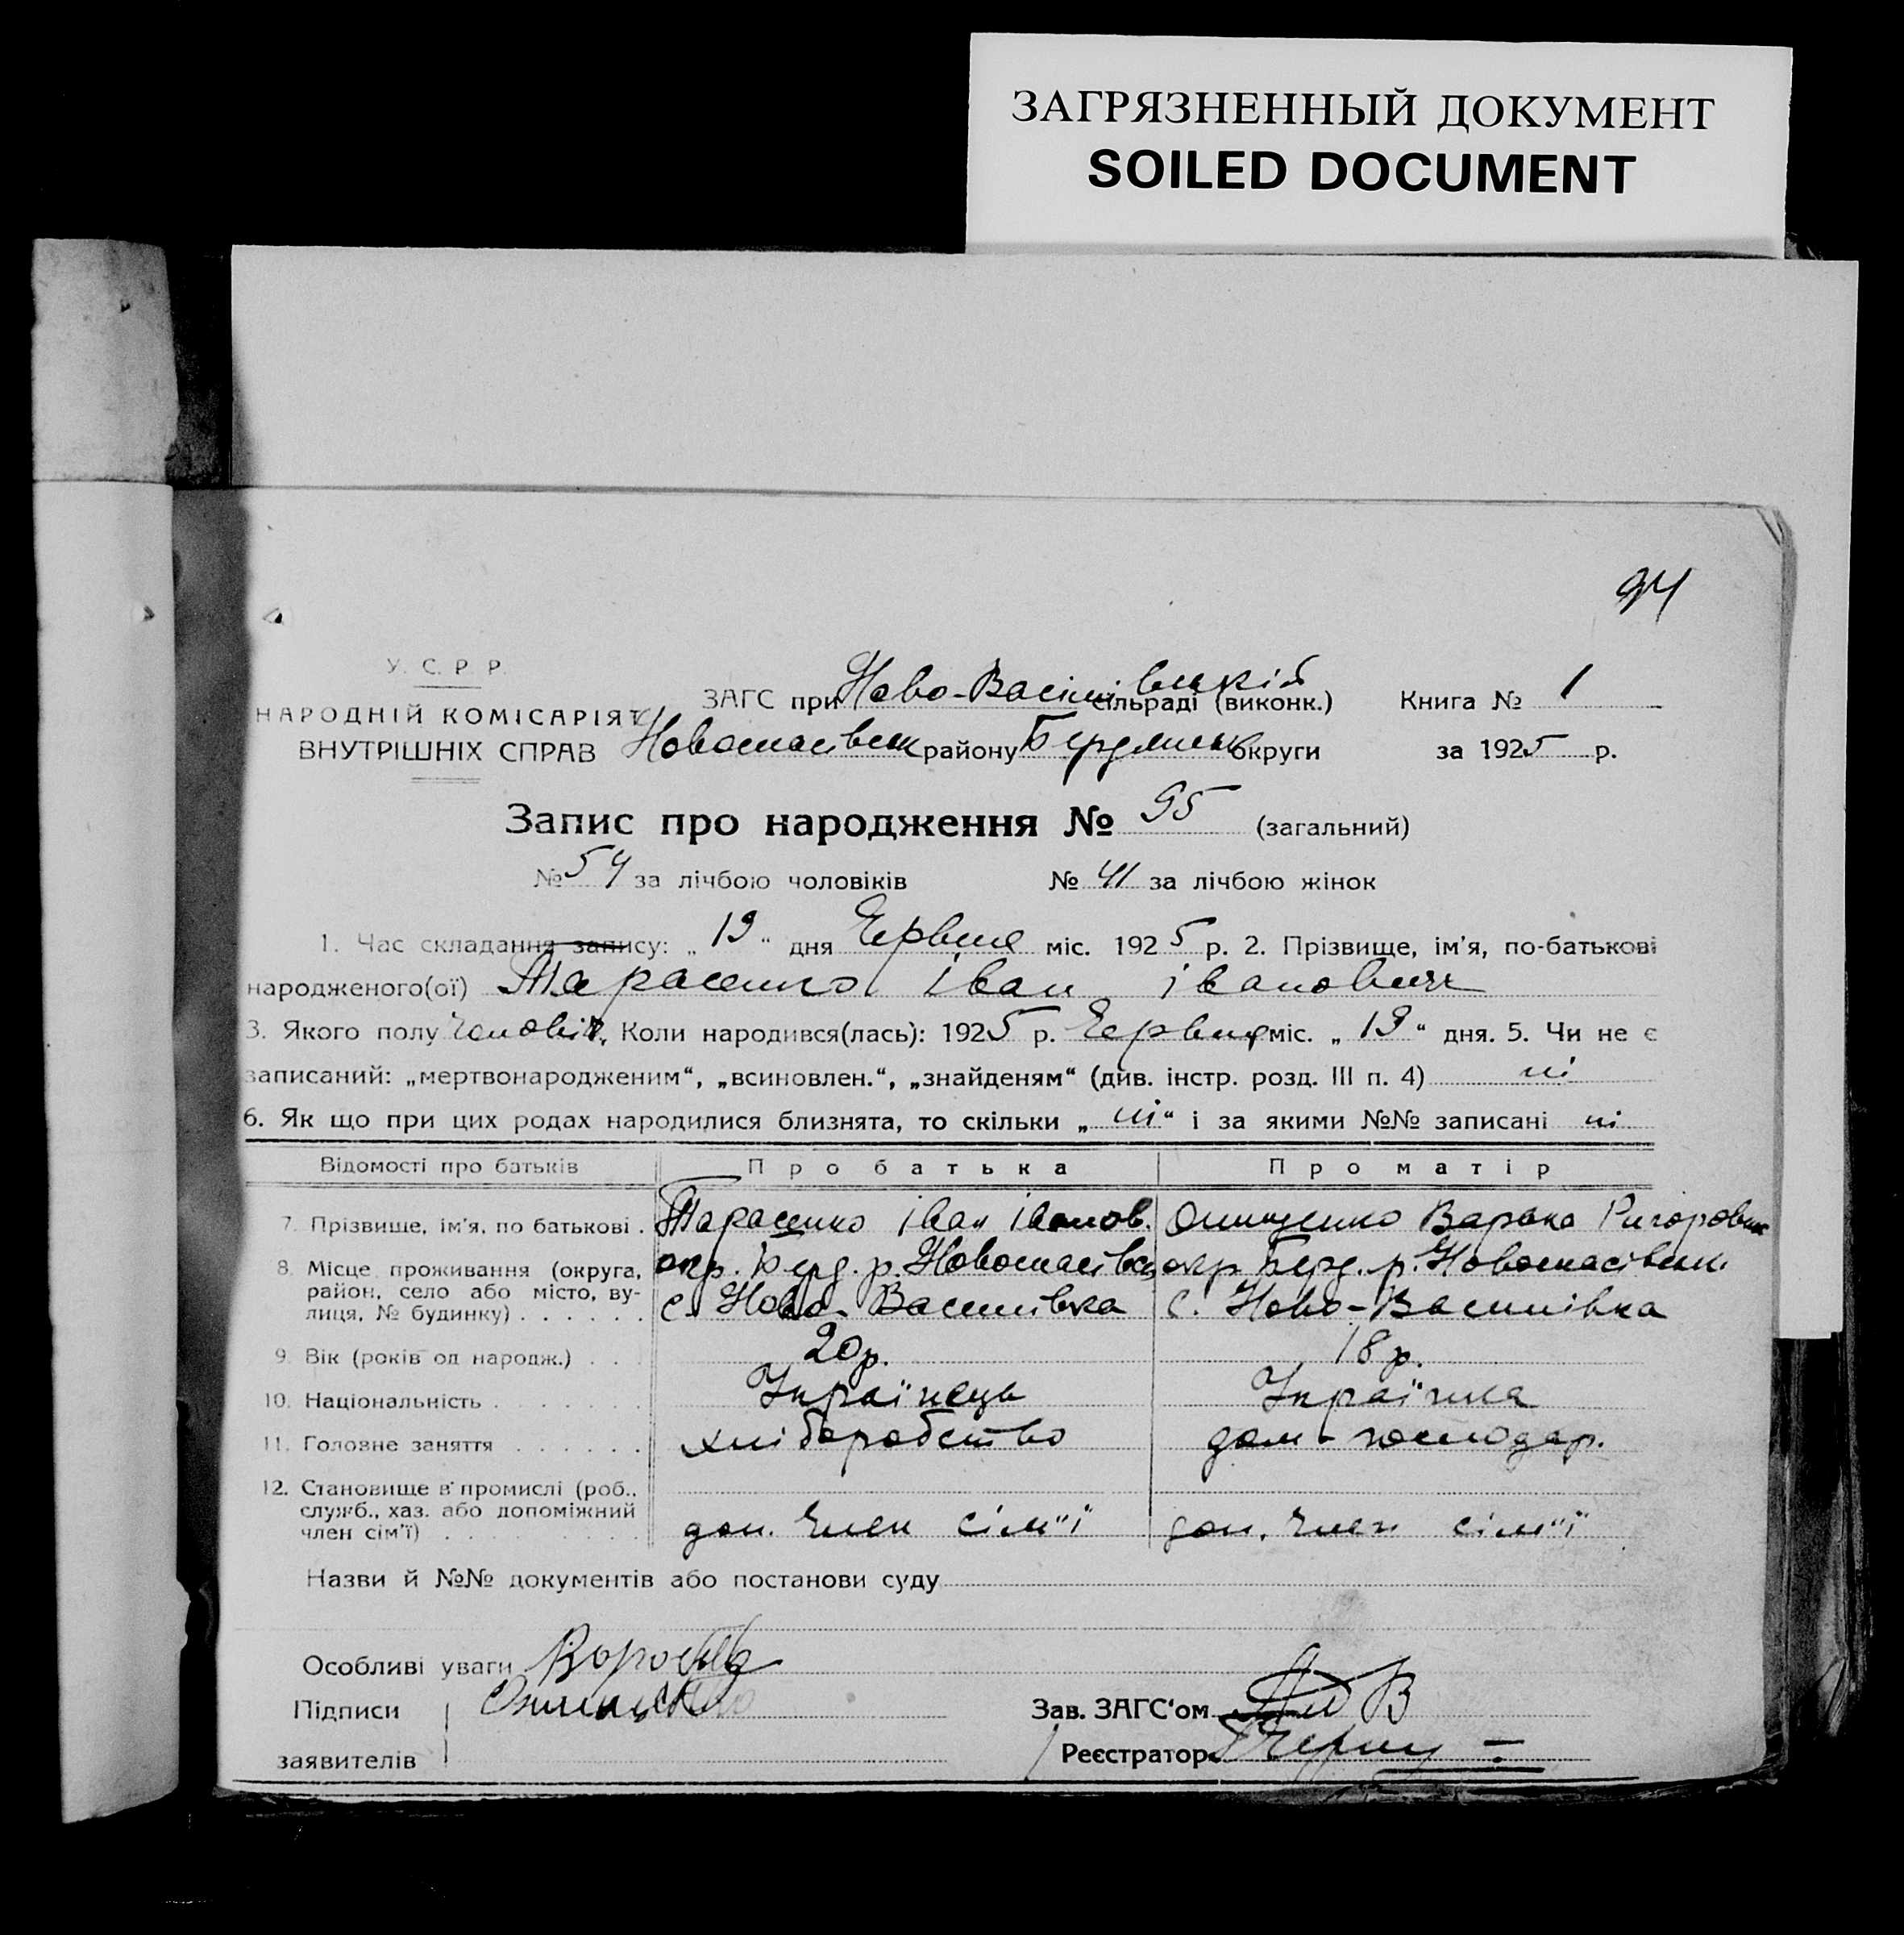 ЗАГРЯЗНЕННЫЙ ДОКУМЕНТ
SOILED DOCUMENT
94
У. С. Р. Р.
НАРОДНІЙ КОМІСАРІЯТ
ВНУТРІШНІХ СПРАВ
ЗАГС при Ново-Василівській сільраді (виконк.) Книга № 1
Новоспасівськ району Бердянськ округи за 1925 р.
Запис про народження № 95 (загальний)
№ 54 за лічбою чоловіків № 41 за лічбою жінок
1. Час складання запису: „19“ дня Червня міс. 1925 р. 2. Прізвище, ім'я, по-батькові
народженого(ої) Тарасенко Іван Іванович
3. Якого полу Чоловіч. Коли народився(лась): 1925 р. Червня міс. „19“ дня. 5. Чи не є
записаний: „мертвонародженим“, „всиновлен.“, „знайденям“ (див. інстр. розд. III п. 4) ні
6. Як що при цих родах народилися близнята, то скільки „ні“ і за якими №№ записані ні
Відомості про батьків Про батька Про матір
7. Прізвище, ім'я, по батькові . Тарасенко Іван Іванов. Онищенко Варька Ригоровн
8. Місце проживання (округа, район, село або місто, вулиця, № будинку) . . . . . . окр. Берд. р. Новоспасівськ окр. Берд. р. Новоспасівськ.
с. Ново-Василівка с. Ново-Василівка
9. Вік (років од народж.) . . . 20р. 18р.
10. Національність . . . . . . . Українець Українка
11. Головне заняття . . . . . . хліборобство дом-господар.
12. Становище в промислі (роб., служб., хаз. або допоміжний член сім'ї) . . . . . . . . доп. Член сім"ї доп. Член сім"ї
Назви й №№ документів або постанови суду
Особливі уваги
Підписи Онищенко Зав. ЗАГС'ом
заявителів Реєстратор